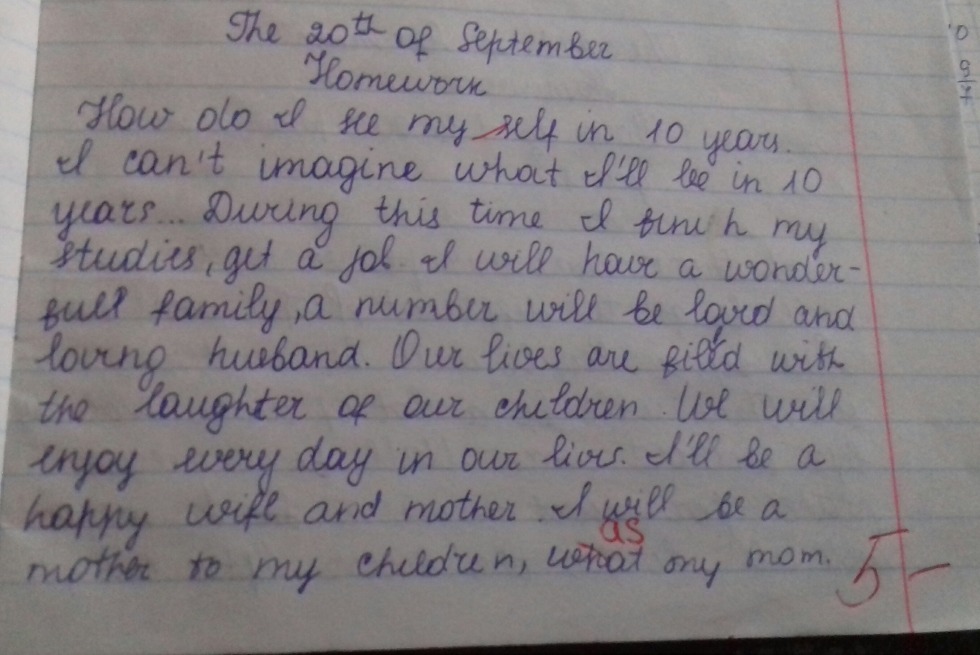 The 20th of September
Homework
How do I see my self in 10 years.
I can't imagine what I'll be in 10
years... During this time I finish my
studies, get a job. I will have a wonder-
full family, a number will be loved and
loving husband. Our lives are filled with
the laughter of our children. We will
enjoy every day in our lives. I'll be a
happy wife and mother. I will be a
as
mother to my children, what my mom.
5-